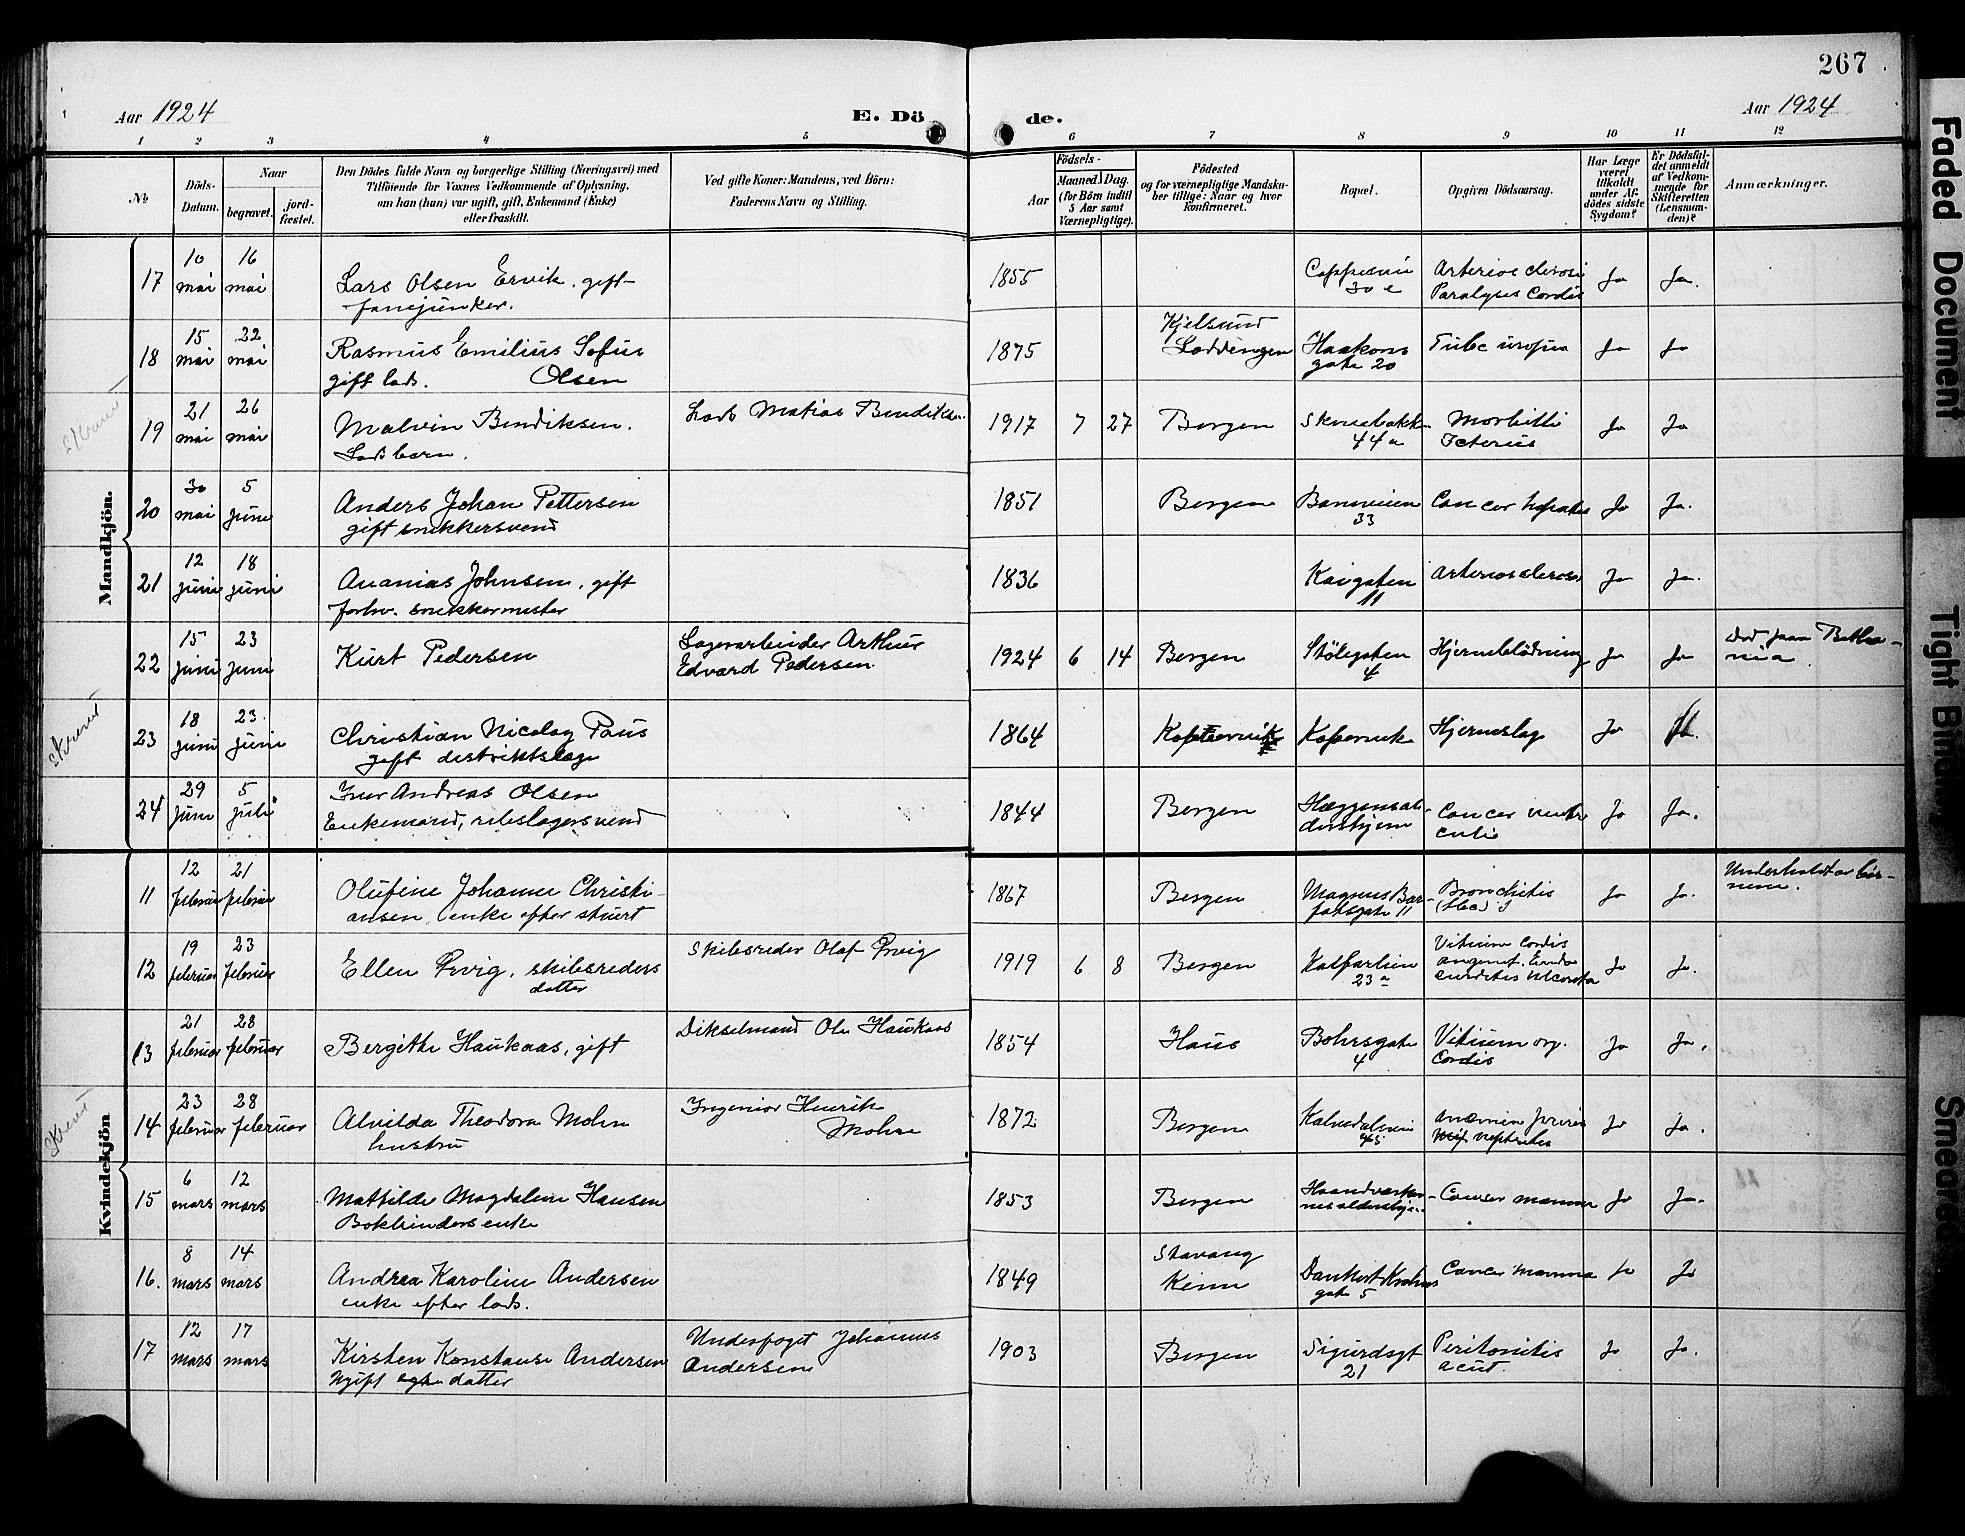 267
Aar 1924
E. Dö
de.
Aar 1924
1 2 3 4 5 6 7 8 9 10 11 12
No
Döds-
Datum.
Naar
begravet.
jord-
fæstet.
Den Dödes fulde Navn og borgerlige Stilling (Næringsvei) med
Tilföiende for Voxnes Vedkommende af Oplysning,
om han (hun) var ugift, gift, Enkemand (Enke)
eller fraskilt.
Ved gifte Koner: Mandens, ved Börn:
Faderens Navn og Stilling.
Födsels-
Aar
Maaned
Dag.
(for Börn indtil
5 Aar samt
Værnepligtige).
Födested
og for værnepligtige Mandska-
ber tillige: Naar og hvor
konfirmeret.
Bopæl.
Opgiven Dödsaarsag.
Har Læge
været
tilkaldt
under Af-
dödes sidste
Sygdom?
Er Dödsfal-
det anmeldt
af Vedkom-
mende for
Skifteretten
(Lensman-
den)?
Anmærkninger.
Mandkjön.
17
10 mai
16 mai
Lars Olsen Ervik, gift
fanejunker.
1855
30 e
Paralyses Cordis
Ja
Ja.
18
15 mai
22 mai
Rasmus Emilius Sofus
gift lods. Olsen
1875
Kjelsund
Loddingen
Haakons
gate 20
Ja
Ja
19
21 mai
26 mai
Malvin Bendiksen.
Lodsbarn.
Lods Matias Bendiksen
1917 7 27
Bergen
44 a
Morbilli
Icterus
Ja
Ja
20
30 mai
5 juni
Anders Johan Pettersen
gift snekkersvend
1851
Bergen
33
Cancer hepatis
Ja
Ja.
21
12 juni
18 juni
Ananias Johnsen, gift
forhv. snekkermester
1836
Kaigaten
11
Ja
Ja.
22
15 juni
23 juni
Kurt Pedersen
Lagerarbeider Arthur
Edvard Pedersen
1924 6 14
Bergen
Stölegaten
4
Hjerneblödning
Ja
Ja
död paa Betha-
nia.
23
18 juni
23. juni
Christian Nicolay Paus
gift distriktslæge
1864
Kopervik
Hjerneslag
Ja
24
29 juni
5 juli
Iver Andreas Olsen
Enkemand, rebslagersvend
1844
Bergen
Hæggensal-
dershjem
Ja
Ja.
Kvindekjön
11
12 februar
21 februar
Olufine Johanne Christi-
ansen, enke efter stuert
1867
Bergen
Magnus Bar-
fotsgate 11
Bronchitis
Ja
Ja.
12
19 februar
23 februar
Ellen Ørvig, skibsreders
datter
Skibsreder Olaf Ørvig
1919 6 8
Bergen
Kalfarlien
23 a
Vitium Cordis
Ja
Ja.
13
21 februar
28 februar
Bergithe Haukaas, gift
Dikselmand Ole Haukaas
1854
Haus
Bohrsgate
4
Vitium org.
Cordis
Ja
Ja.
14
23 februar
28 februar
Alvilda Theodora Mohn
hustru
Ingeniör Henrik
Mohn
1872
Bergen
Kalvedalsvei
45
Ja
Ja.
15
6 mars
12 mars
Mathilde Magdalene Hansen
Bokbinders enke
1853
Bergen
Haandværker-
nes aldershjem
Cancer mamma
Ja
Ja.
16.
8 mars
14 mars
Andrea Karoline Andersen
enke efter lods.
1849
Stavang
Kinn
Dankert Krohns
gate 5
Cancer mamma
Ja
Ja
17
12 mars
17 mars
Kirsten Konstanse Andersen
Ugift datter
Underfoget Johannes
Andersen
1903
Bergen
Sigurdsgt
21
Peritonitis
acut.
Ja
Ja.
Faded Document
Tight Binding
Smeared